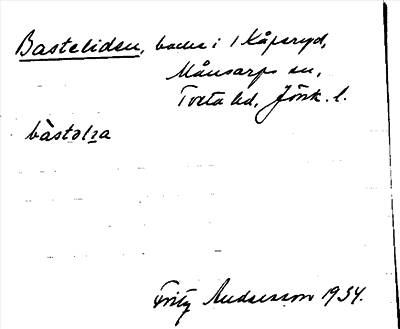 Basteliden, backe i 1 Kåperyd,
Månsarps sn,
Tveta hd, Jönk. l.
bàstəlıa
Fritz Andersson 1934.